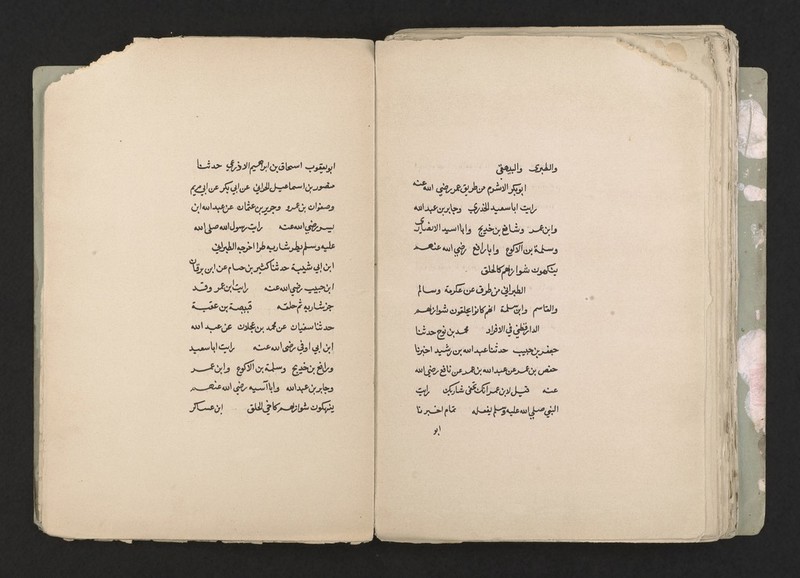 والطبرى والبيهقى
ابو بكر الاثرم من طريق عمر رضي الله عنه
رايت ابا سعيد الخدري وجابر بن عبد الله
وابن عمر ورافع بن خديج وابا اسيد الانصاري
وسلمة بن الاكوع وابا رافع رضي الله عنهم
ينهكون شواربهم كالحلق
الطبراني من طرق عن عكرمة وسالم
والقاسم وابن سلمة انهم كانوا يحلقون شواربهم
الدارقطني في الافراد محمد بن نوح حدثنا
جعفر بن حبيب حدثنا عبد الله بن رشيد اخبرنا
حفص بن عمر عن عبد الله بن عمر عن نافع رضي الله
عنه قيل لابن عمر انك تحفي شاربك رايت
النبي صلى الله عليه وسلم يفعله تمام اخبرنا
ابو
ابو يعقوب اسحاق بن ابراهيم الاذرعي حدثنا
منصور بن اسماعيل الحراني عن ابي بكر عن ابي مريم
وصفوان بن عمرو وجرير بن عثمان عن عبد الله ابن
بسر رضي الله عنه رايت رسول الله صلى الله
عليه وسلم يطر شاربه طرا اخرجه الطبراني
ابن ابي شيبة حدثنا كثير بن هشام عن ابن برقان
ابن حبيب رضي الله عنه رايت ابن عمر وقد
جز شاربه ثم حلقه قبيصة بن عقبة
حدثنا سفيان عن محمد بن عجلان عن عبد الله
ابن ابي اوفى رضي الله عنه رايت ابا سعيد
ورافع بن خديج وسلمة بن الاكوع وابن عمر
وجابر بن عبد الله وابا اسيد رضي الله عنهم
ينهكون شواربهم كاخي الحلق ابن عساكر